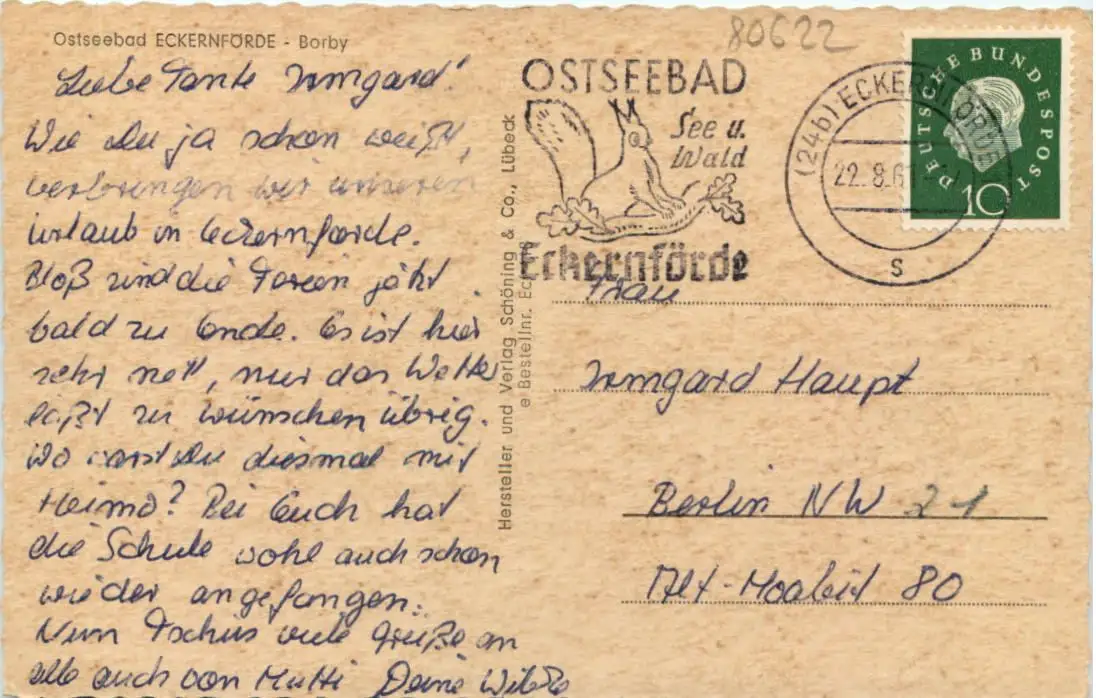 80622
Ostseebad ECKERNFÖRDE - Borby
Liebe Tante Irmgard!
Wie Du ja schon weißt,
verbringen wir unseren
Urlaub in Eckernförde.
Bloß sind die Ferien jetzt
bald zu Ende. Es ist hier
sehr nett, nur das Wetter
läßt zu wünschen übrig.
Wo warst Du diesmal mit
Heimo? Bei Euch hat
die Schule wohl auch schon
wieder angefangen.
Nun Tschüs viele Grüße an
alle auch von Mutti Deine
Hersteller und Verlag Schöning & Co., Lübeck
e Bestellnr. Eck
OSTSEEBAD
See u.
Wald
Eckernförde
(24b) ECKERNFÖRDE
22.8.61
s
DEUTSCHE BUNDESPOST
10
Frau
Irmgard Haupt
Berlin NW 21
Alt-Moabit 80